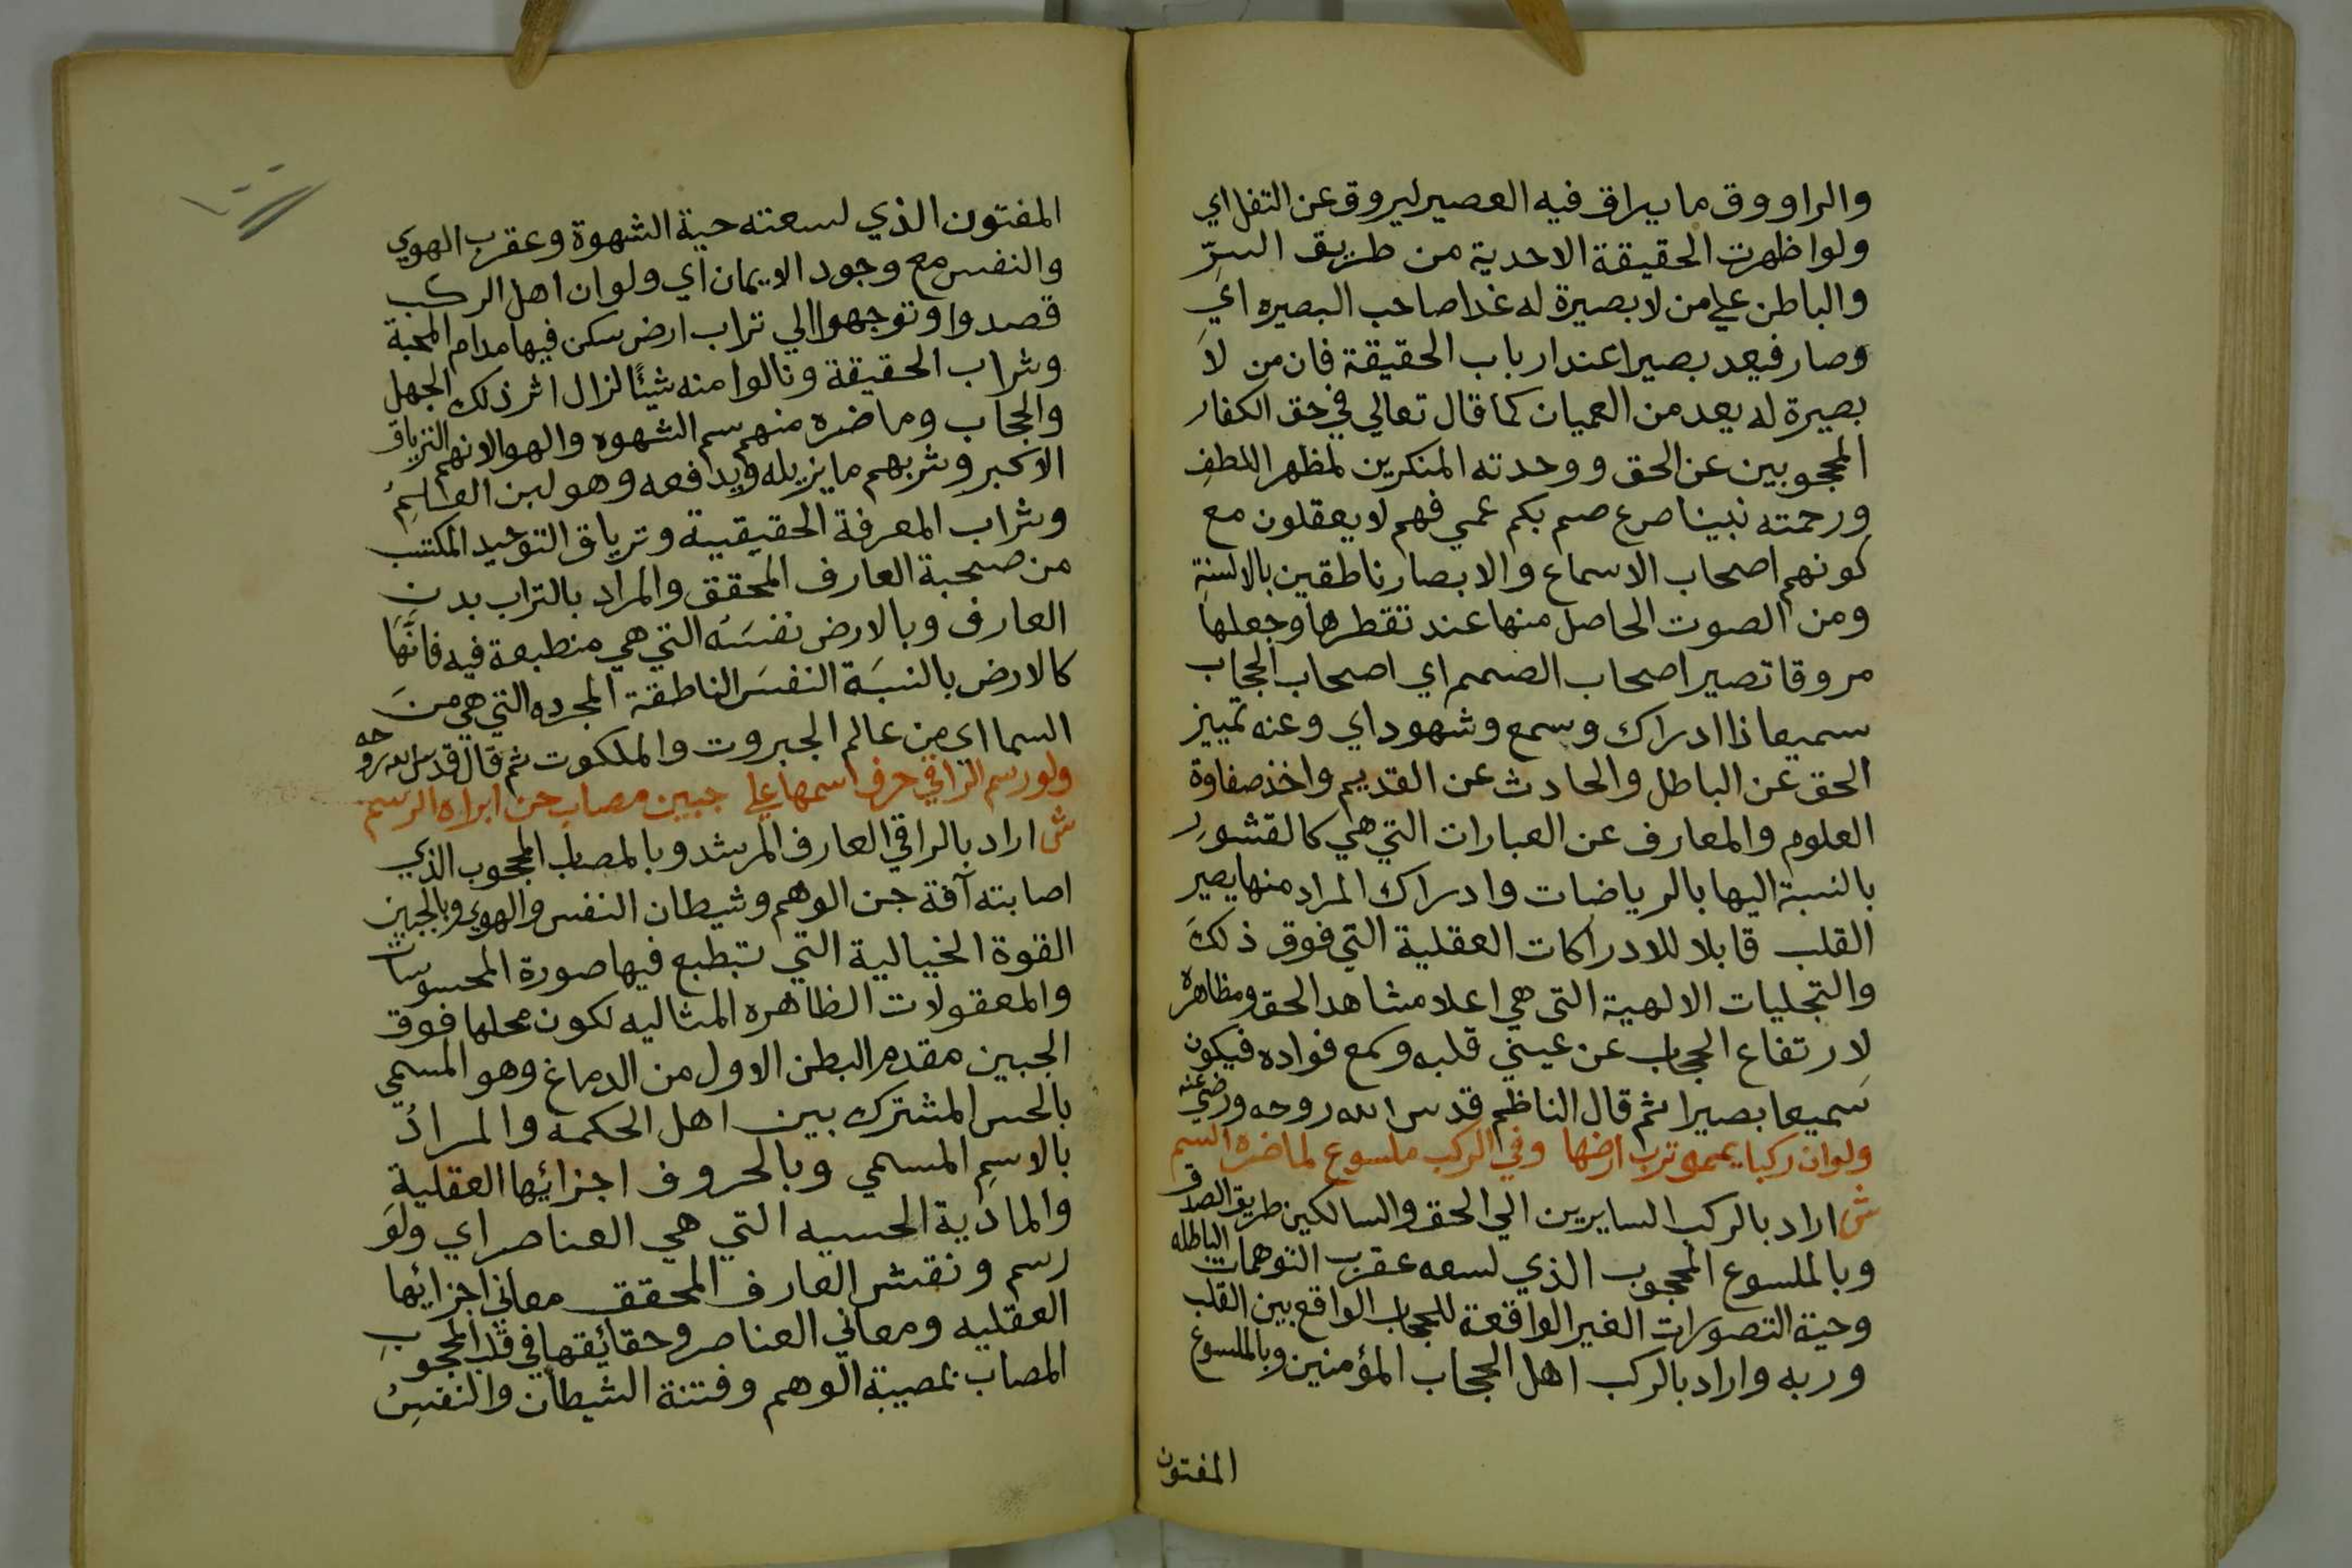 والراووق ما يراق فيه العصير ليروق عن التفل اي
ولو اظهرت الحقيقة الاحدية من طريق السرّ
والباطن علي من لا بصيرة له غدا صاحب البصيره اي
وصار فيعد بصيرا عند ارباب الحقيقة فان من لا
بصيرة له يعد من العميان كما قال تعالي في حق الكفار
المحجوبين عن الحق ووحدته المنكرين لمظهر اللطف
ورحمته نبينا صرع صم بكم عمي فهم لا يعقلون مع
كونهم اصحاب الاسماع والابصار ناطقين بالالسنة
ومن الصوت الحاصل منها عند تقطرها وجعلها
مروقا تصير اصحاب الصمم اي اصحاب الحجاب
سميعا ذا ادراك وسمع وشهود اي وعنه تمييز
الحق عن الباطل والحادث عن القديم واخذ صفاوة
العلوم والمعارف عن العبارات التي هي كالقشور
بالنسبة اليها بالرياضات وادراك المراد منها يصير
القلب قابلا للادراكات العقلية التي فوق ذلك
والتجليات الالهية التي هي اعلا مشاهد الحق ومظاهره
لارتفاع الحجاب عن عيني قلبه وسمع فواده فيكون
سميعا بصيرا ثم قال الناظم قدس الله روحه ورضي عنه
ولو ان ركبا يمموترب ارضها وفي الركب ملسوع لما ضره السم
ش اراد بالركب السايرين الي الحق والسالكين طريق الصدق
وبالملسوع المحجوب الذي لسعه عقرب التوهمات الباطله
وحية التصورات الغير الواقعة للحجاب الواقع بين القلب
وربه واراد بالركب اهل الحجاب المؤمنين وبالملسوع
المفتون
المفتون الذي لسعته حية الشهوة وعقرب الهوي
والنفس مع وجود الايمان اي ولو ان اهل الركب
قصدوا وتوجهوا الي تراب ارض سكن فيها مدام المحبة
وشراب الحقيقة ونالوا منه شيئًا لزال اثر ذلك الجهل
والحجاب وما ضره منهم سم الشهوه والهوا لانهم الترياق
الاكبر وشربهم ما يزيله ويدافعه وهو لبن العالم
وشراب المعرفة الحقيقية وترياق التوحيد المكتسب
من صحبة العارف المحقق والمراد بالتراب بدن
العارف وبالارض نفسه التي هي منطبعة فيه فانها
كالارض بالنسبة النفس الناطقة المجرده التي هي من
السما اي من عالم الجبروت والملكوت ثم قال قدس الله روحه
ولو رسم الراقي حرف اسمها علي جبين مصاب جن ابراه الرسم
ش اراد بالراقي العارف المرشد وبالمصاب المحجوب الذي
اصابته آفة جن الوهم وشيطان النفس والهوي وبالجبين
القوة الخيالية التي تبطبع فيها صورة المحسوسات
والمعقولات الظاهره المثاليه لكون محلها فوق
الجبين مقدم البطن الاول من الدماغ وهو المسمي
بالحس المشترك بين اهل الحكمه والمراد
بالاسم المسمي وبالحروف اجزائها العقلية
والمادية الحسيه التي هي العناصر اي ولو
رسم ونقش العارف المحقق معاني اجزائها
العقليه ومعاني العناصر وحقائقها في قلب المحجوب
المصاب بمصيبة الوهم وفتنة الشيطان والنفس